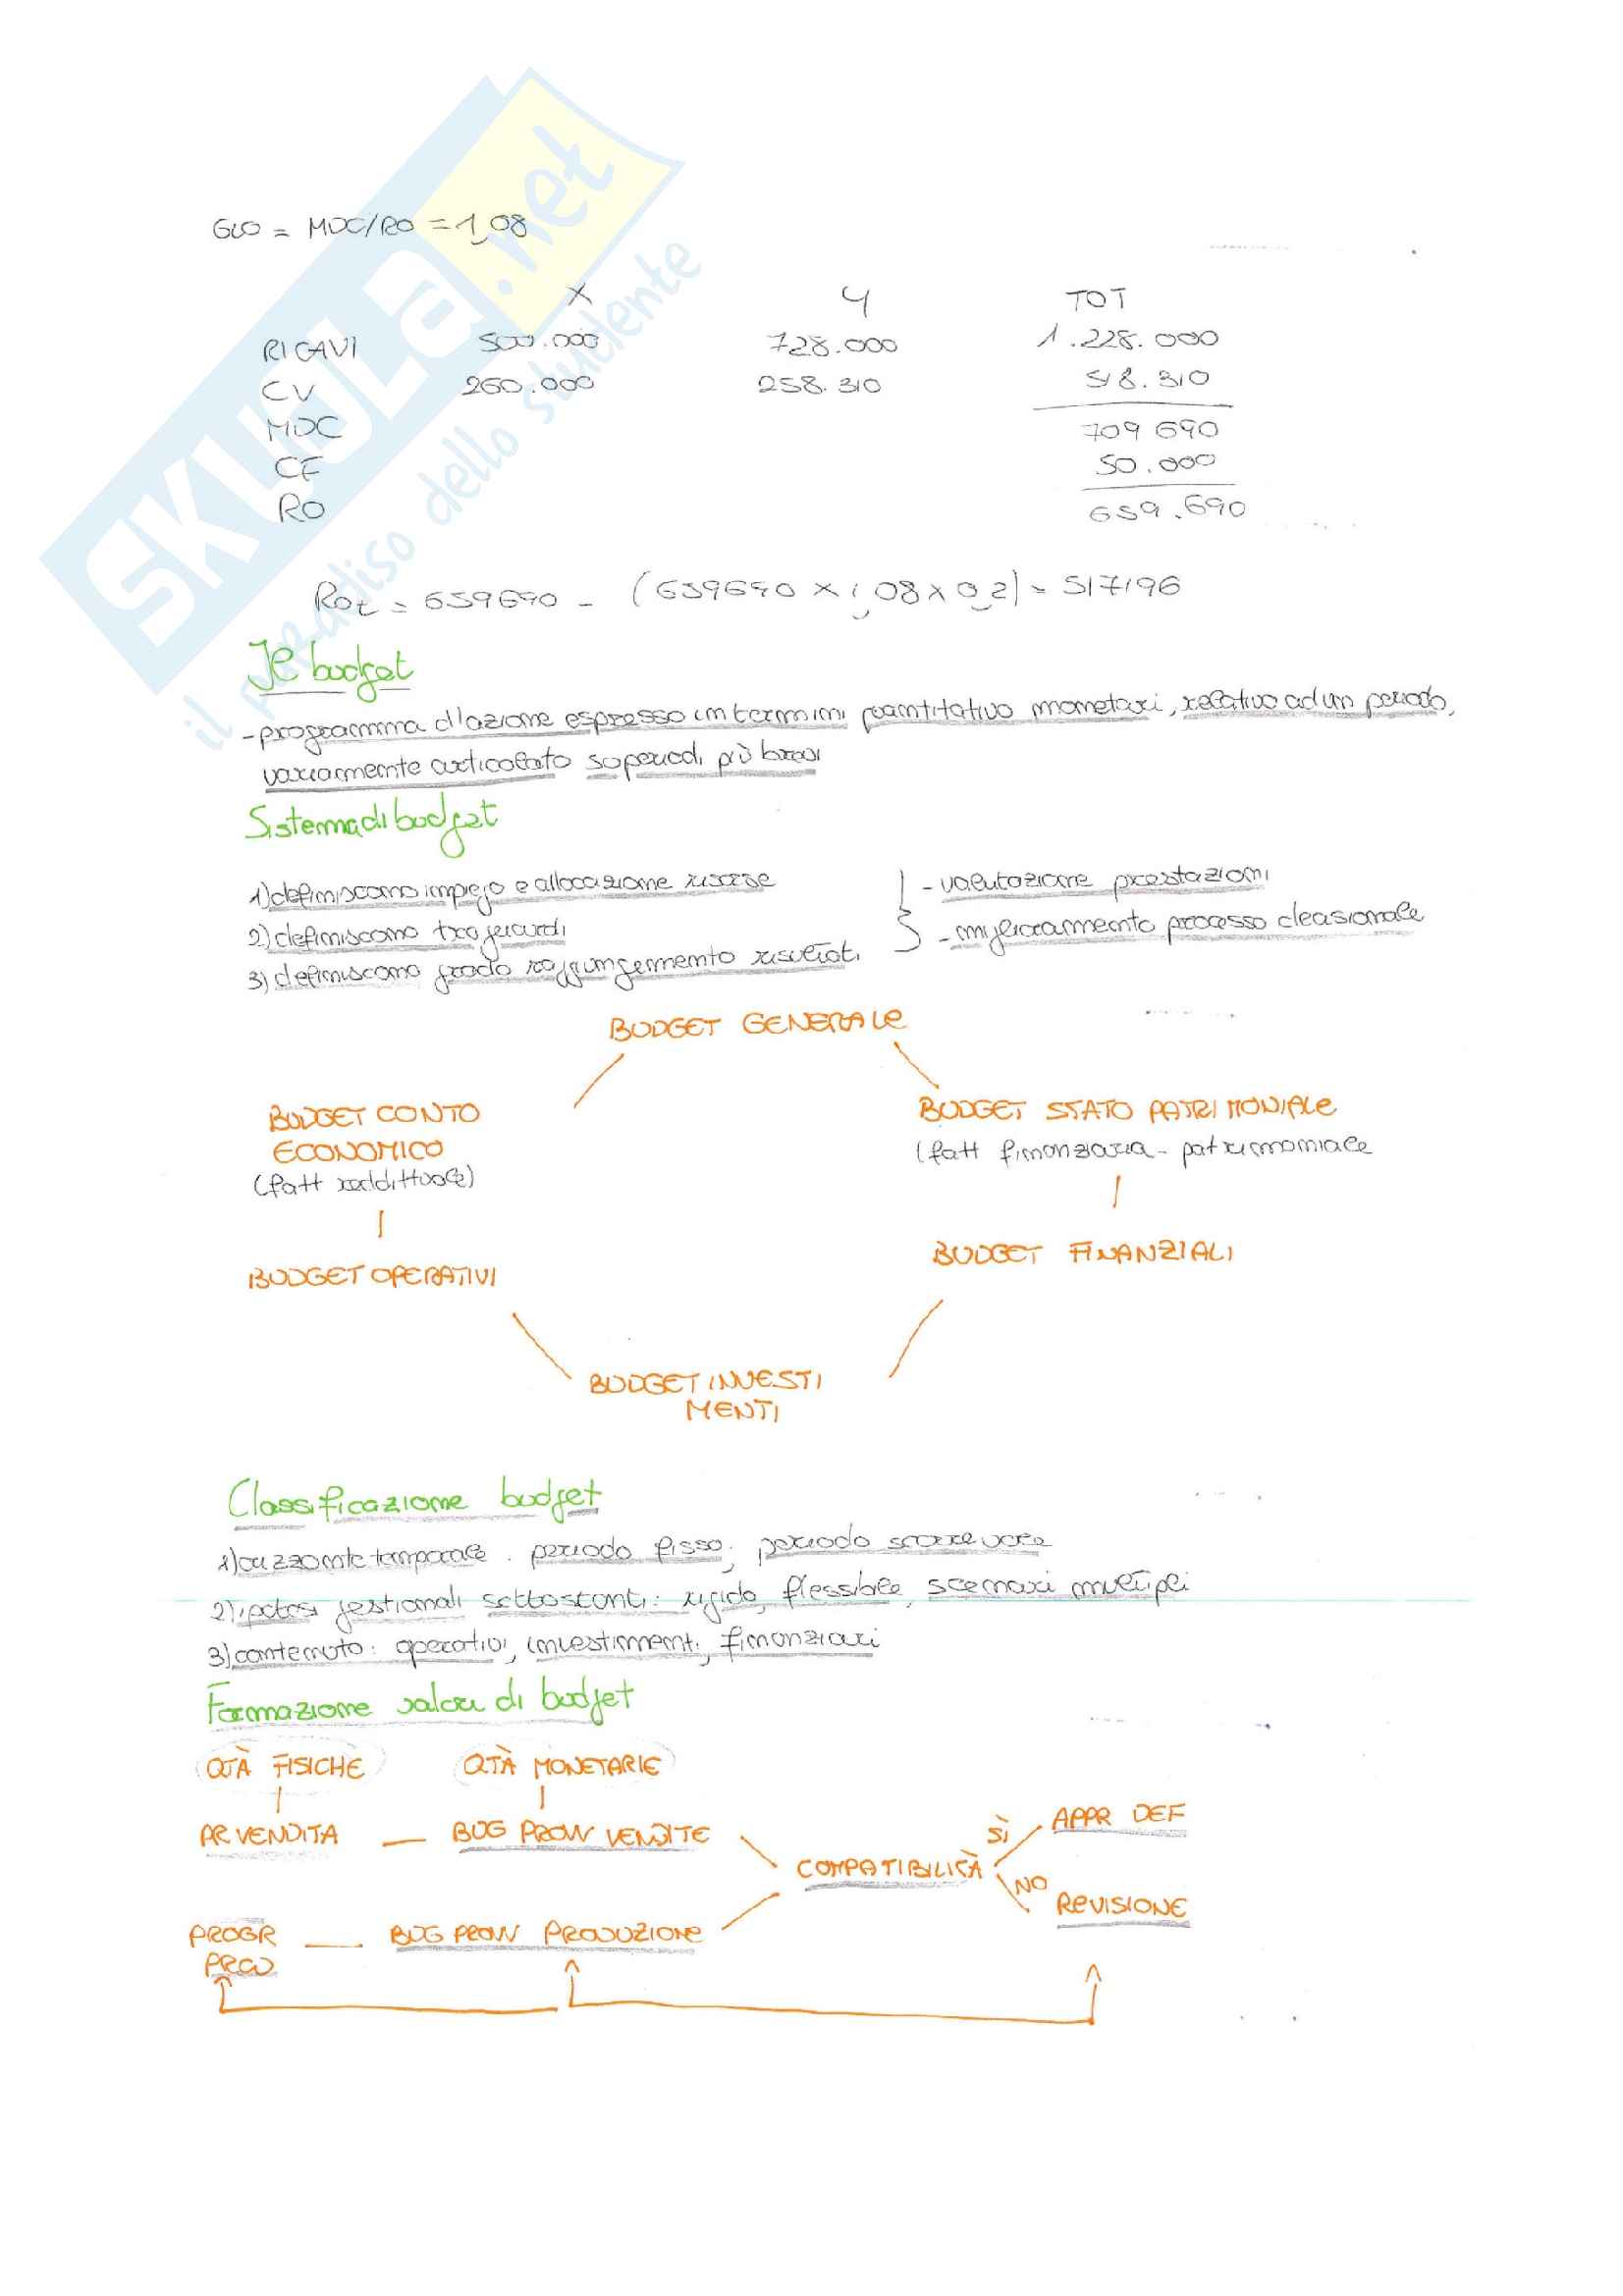 SKUOLA.net
il paradiso dello studente
GLO = MDC/RO = 1,08
X Y TOT
RICAVI 500.000 728.000 1.228.000
CV 260.000 258.310 518.310
MDC 709 690
CF 50.000
RO 659.690
ROt = 659690 - (659690 x 1,08 x 0,2) = 517196
Il budget
- programma d'azione espresso in termini quantitativo monetari, relativo ad un periodo,
variamente articolato superiodi più brevi
Sistema di budget
1) definiscono impiego e allocazione risorse
2) definiscono traguardi
3) definiscono grado raggiungimento risultati
- valutazione prestazioni
- miglioramento processo decisionale
BUDGET GENERALE
BUDGET CONTO
ECONOMICO
(fatt reddittuale)
BUDGET STATO PATRIMONIALE
(fatt finanziaria - patrimoniale
BUDGET OPERATIVI
BUDGET FINANZIALI
BUDGET INVESTI
MENTI
Classificazione budget
1) orizzonte temporale. periodo fisso, periodo scorrevole
2) ipotesi gestionali sottostanti: rigido, flessibile, scenari multipli
3) contenuto: operativi, investimenti, finanziari
Formazione valori di budget
QTÀ FISICHE QTÀ MONETARIE
PR VENDITA BUG PROVV VENDITE
COMPATIBILITÀ
SÌ APPR DEF
NO REVISIONE
PROGR
PROD
BUG PROVV PRODUZIONE